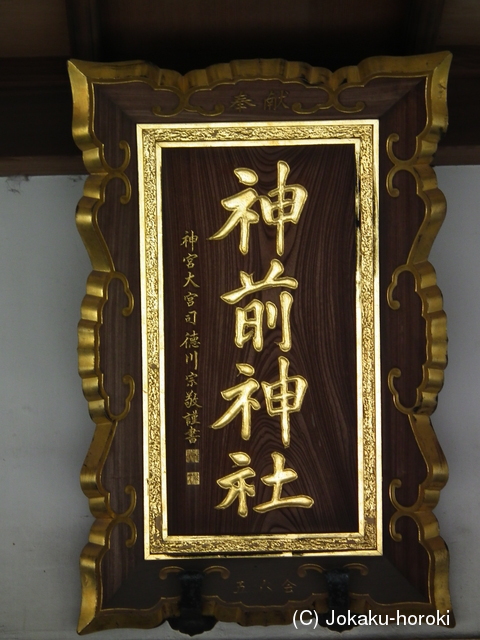 奉献
神前神社
神宮大宮司徳川宗敬謹書
(C) Jokaku-horoki